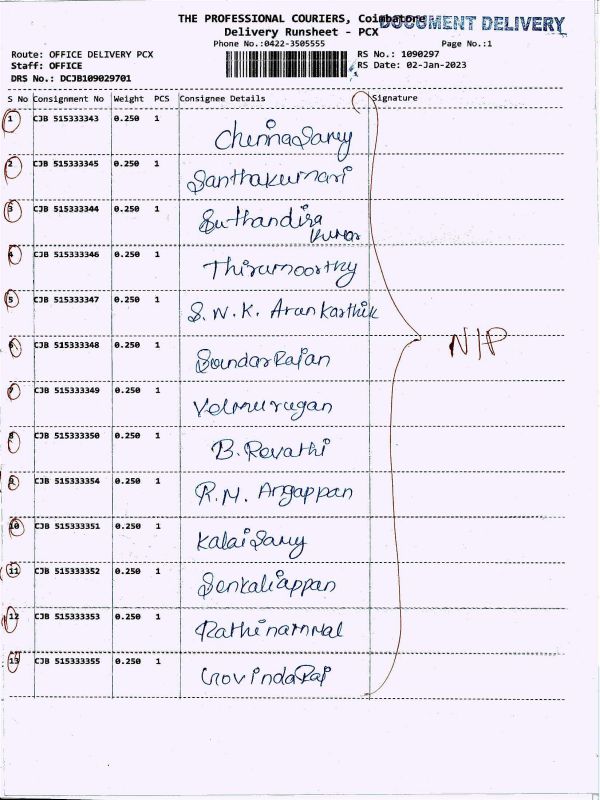 THE PROFESSIONAL COURIERS, Coimbatore
DOCUMENT DELIVERY
Delivery Runsheet - PCX
Phone No.:0422-3505555 Page No.:1
Route: OFFICE DELIVERY PCX RS No.: 1090297
Staff: OFFICE RS Date: 02-Jan-2023
DRS No.: DCJB109029701
S No Consignment No Weight PCS Consignee Details Signature
1 CJB 515333343 0.250 1 Chennasamy
2 CJB 515333345 0.250 1 Santhakumari
3 CJB 515333344 0.250 1 Suthandira
Kumar
4 CJB 515333346 0.250 1 Thirumoorthy
5 CJB 515333347 0.250 1 S. N. K. Arunkarthik
N/P
6 CJB 515333348 0.250 1 Soundarrajan
7 CJB 515333349 0.250 1 Velmurugan
8 CJB 515333350 0.250 1 B. Revathi
9 CJB 515333354 0.250 1 R. M. Angappan
10 CJB 515333351 0.250 1 Kalaisamy
11 CJB 515333352 0.250 1 Senkaliappan
12 CJB 515333353 0.250 1 Rathinammal
13 CJB 515333355 0.250 1 Govindaraj